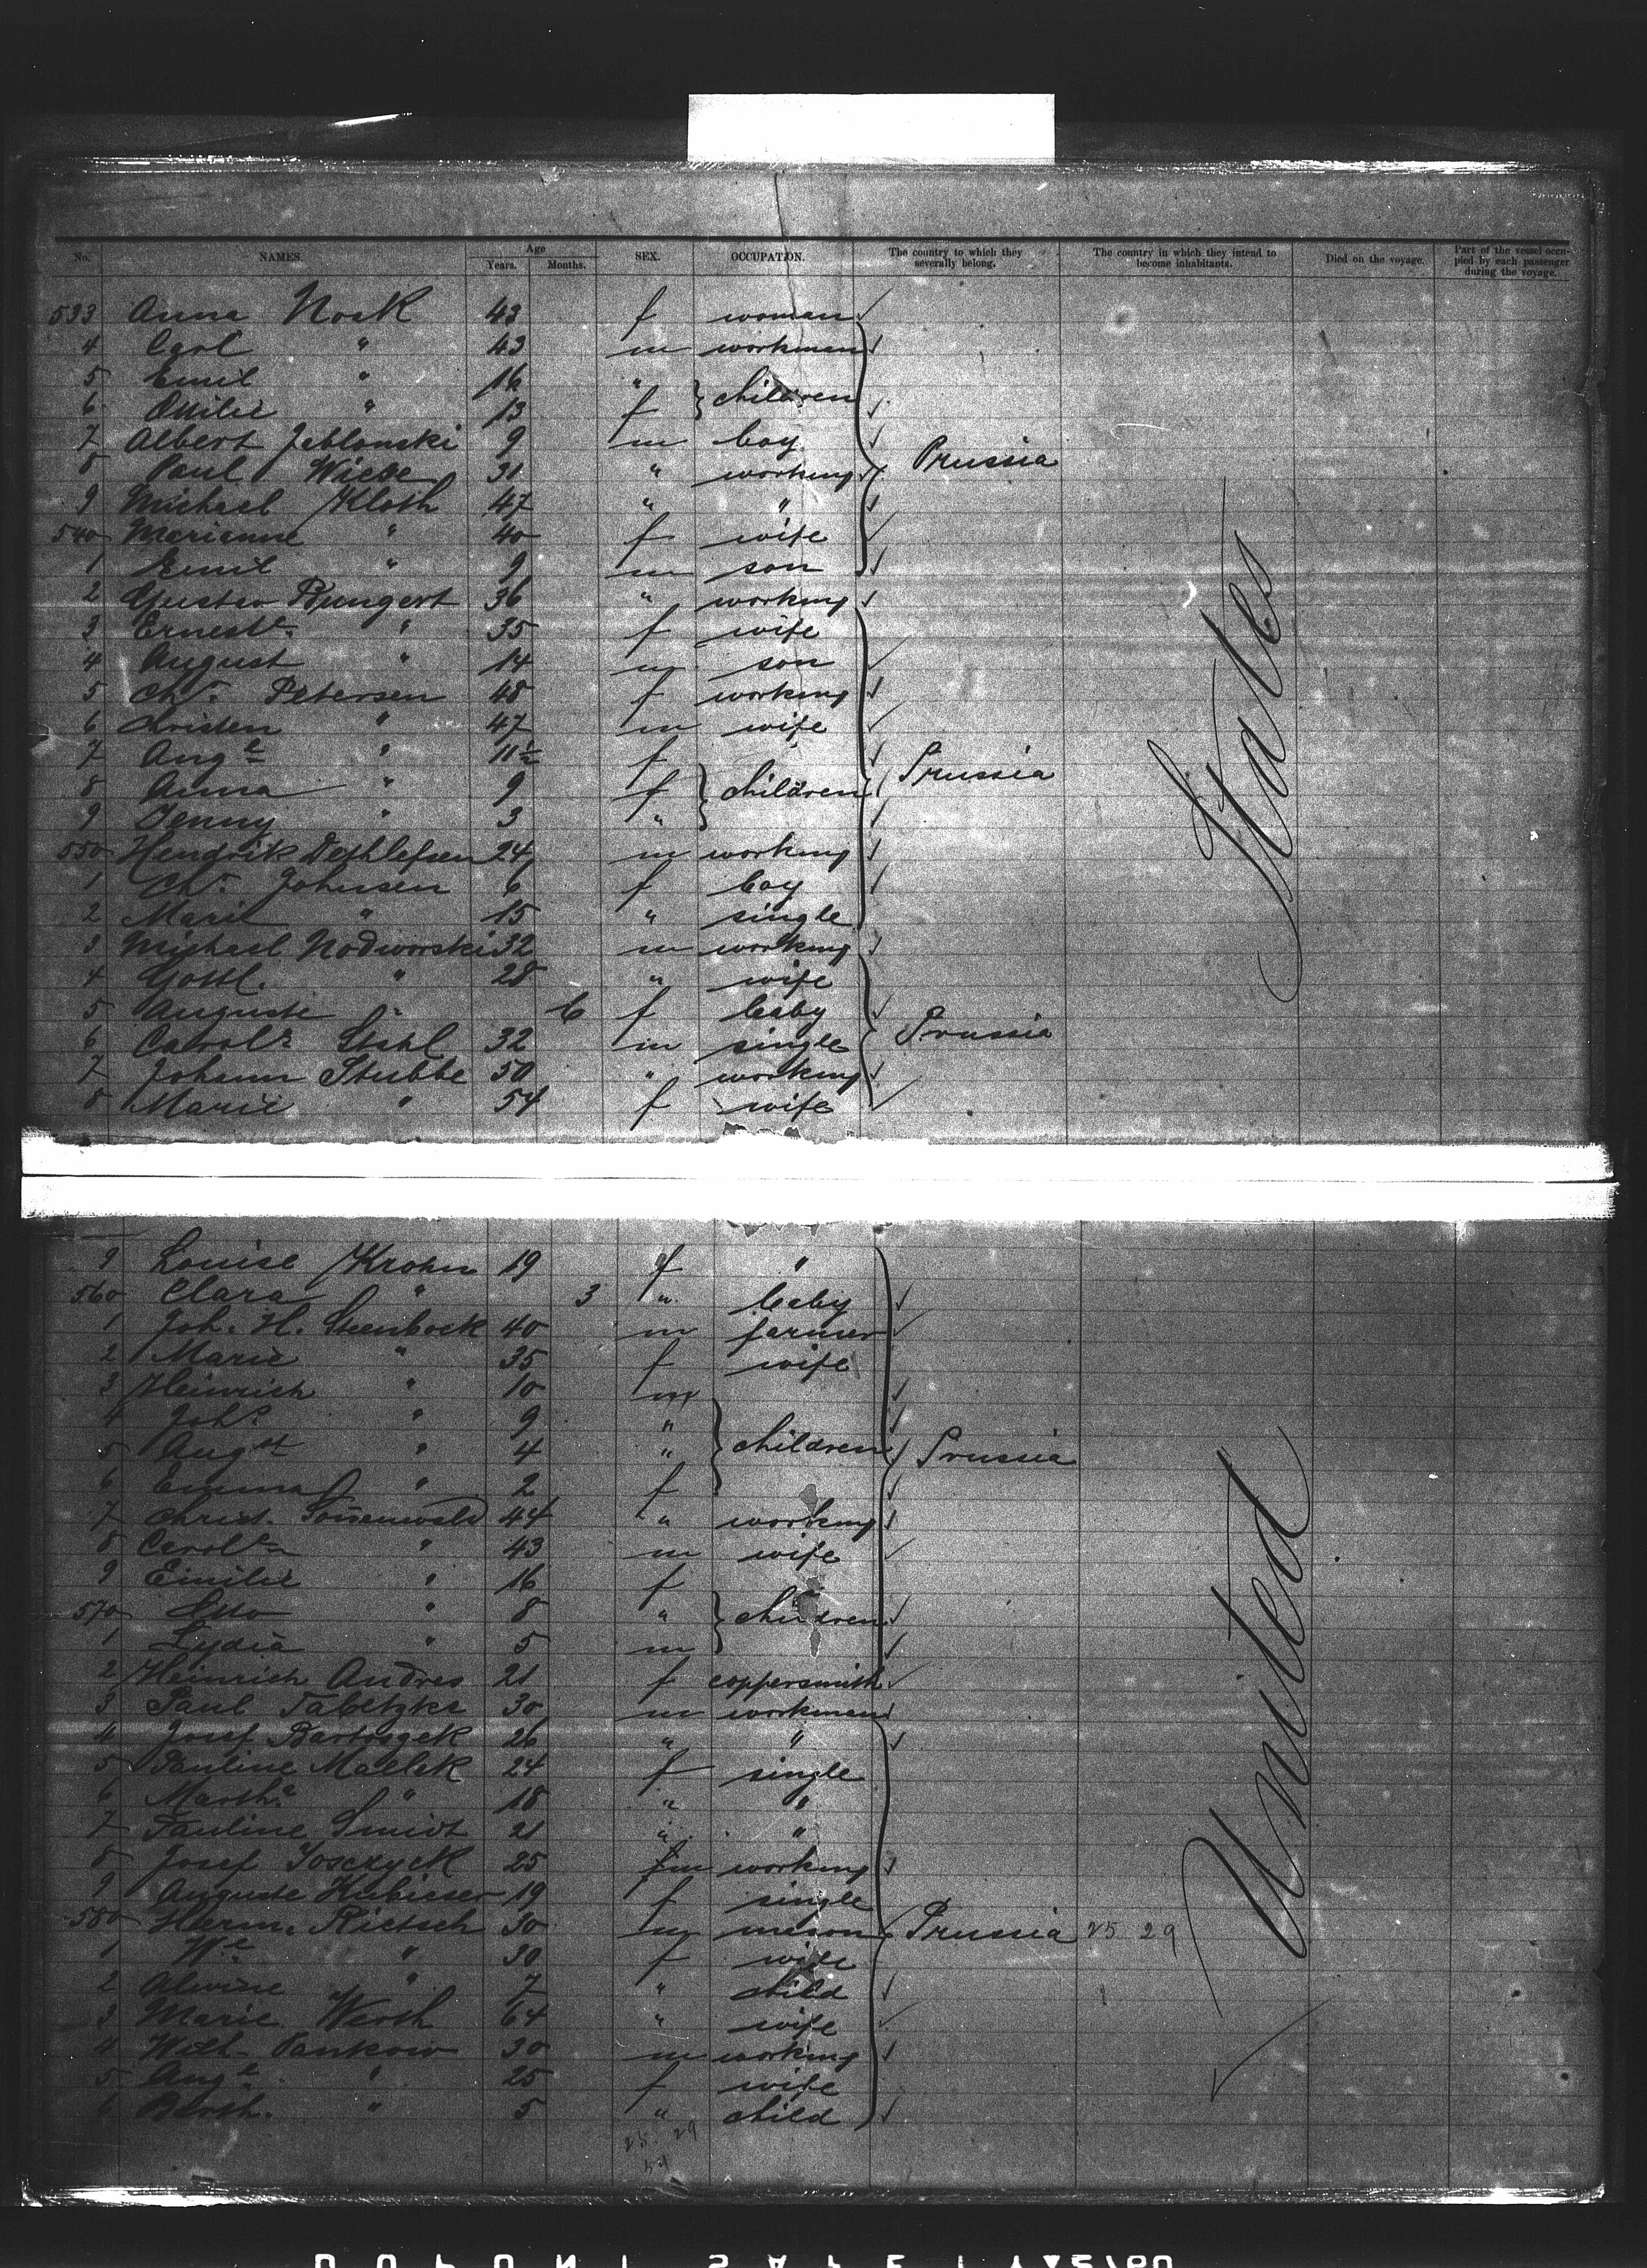 No. NAMES. Age Years. Months. SEX. OCCUPATION. The country to which they severally belong. The country in which they intend to become inhabitants. Died on the voyage. Part of the vessel occupied by each passenger during the voyage.
533 Anna Nock 43 f woman
4 Carl " 43 m workman
5 Emil " 16 "
6 Ottilie " 13 f } children
7 Albert Jablonski 9 m boy
8 Paul Wiebe 31 " working Prussia
9 Michael Kloth 47 " "
540 Marianne " 40 f wife
1 Emil " 9 m son
2 Gustav Bungert 36 " working
3 Ernest^e " 35 f wife
4 August " 14 m son
5 Ch^r. Petersen 48 f working
6 Kristen " 47 m wife
7 Aug^e " 11½ f
8 Anna " 9 f } children Prussia
9 Jenny " 3 "
550 Hendrik Dethlefsen 24 m working
1 Ch^r. Johnsen 6 f boy
2 Marie " 15 " single
3 Michael Nodworski 32 m working
4 Gottl. " 28 " wife
5 Auguste " 6 f baby
6 Carol^e Stahl 32 m single Prussia
7 Johann Stubbe 50 " working
8 Marie " 54 f wife
States
9 Louise Krohn 19 f "
560 Clara " 3 " baby
1 Joh. H. Steenbock 40 m farmer
2 Marie " 35 f wife
3 Heinrich " 10 m
4 Joh^s " 9 "
5 Aug^st " 4 " } children Prussia
6 Emma " 2 f
7 Christ. Sonnenwald 44 " working
8 Carol^e " 43 m wife
9 Emilie " 16 f
570 Otto " 8 " } children
1 Lydia " 5 m
2 Heinrich Andres 21 f coppersmith
3 Paul 30 m workman
4 Josef 26 " "
5 Pauline Mallek 24 f single
6 Marth^a " 18 " "
7 Pauline Smidt 21 " "
8 Josef 25 m working
9 Auguste 19 f single
580 Herm. Rietsch 30 m meson Prussia 25 29
1 W^e " 30 f wife
2 Alwine " 7 " child
3 Marie Werth 64 " wife
4 Wilh. Pankow 30 m working
5 Aug^e " 25 f wife
6 Berth. " 5 " child
25 29
54
United